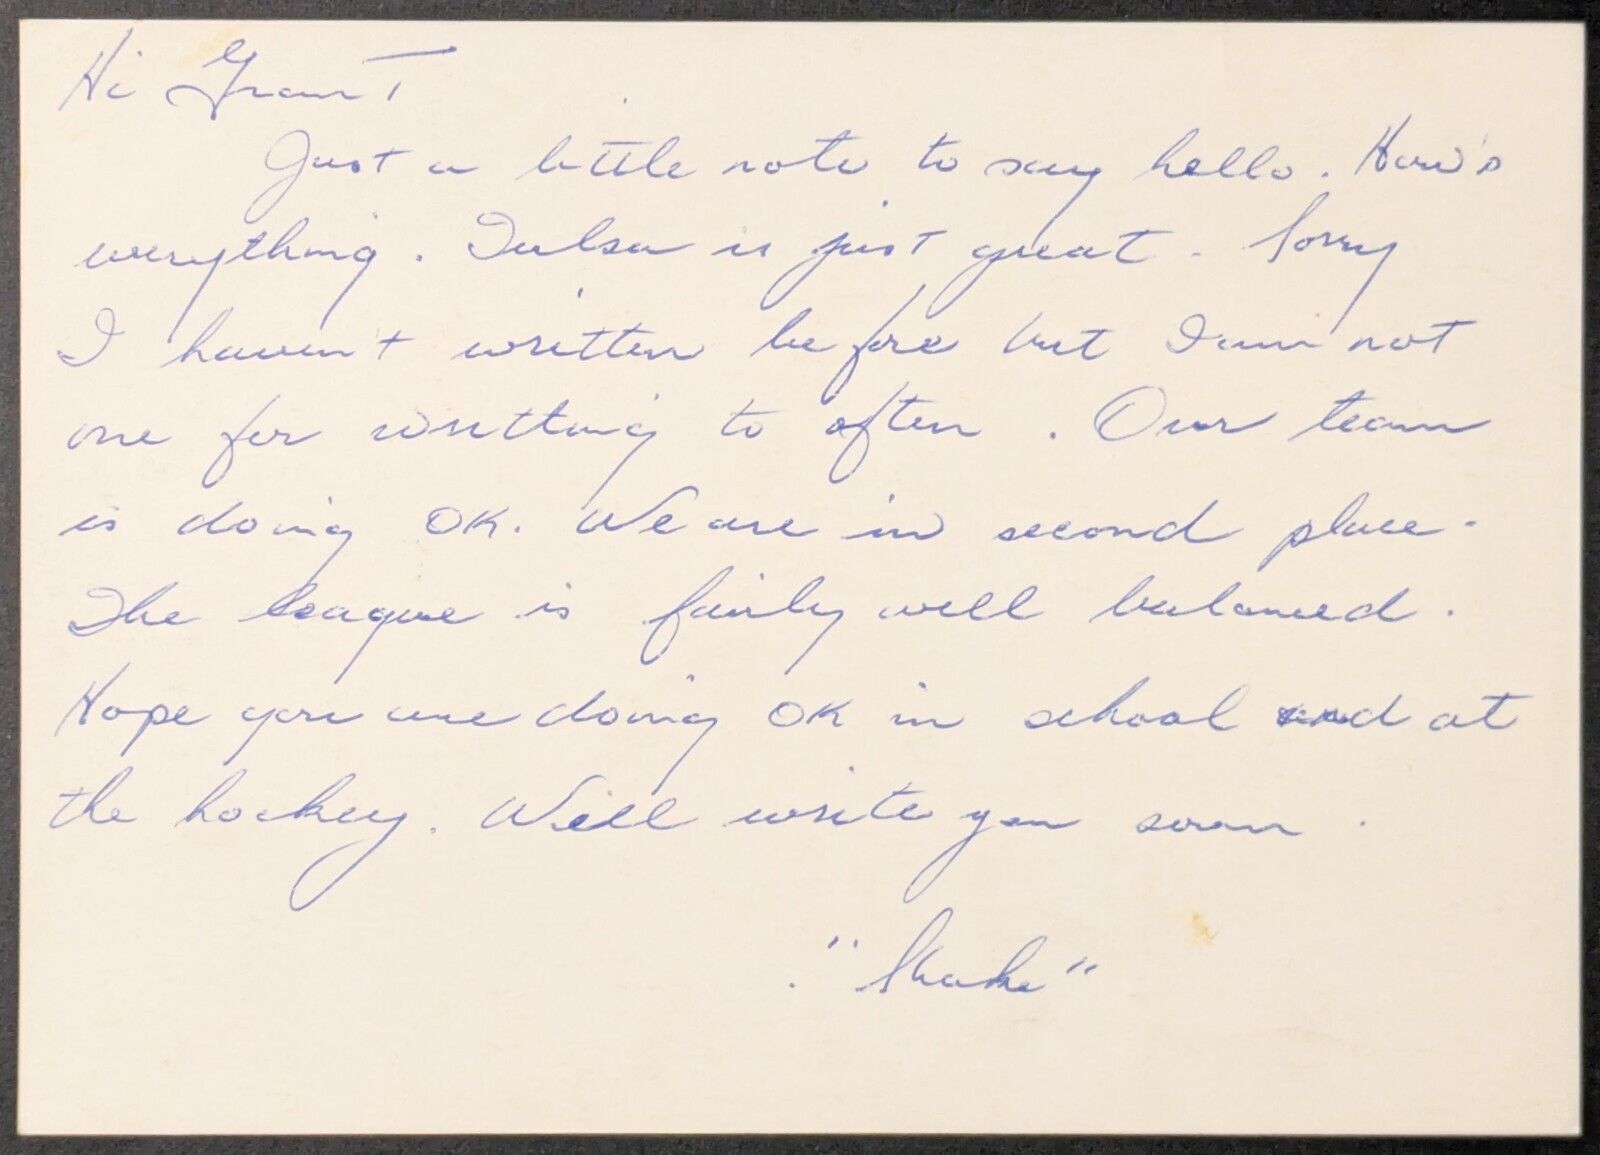 Hi Grant
Just a little note to say hello. How's
everything. Tulsa is just great. Sorry
I haven't written before but I am not
one for writting to often. Our team
is doing OK. We are in second place.
The league is fairly well balanced.
Hope you are doing OK in school and at
the hockey. Will write you soon.
"Shake"